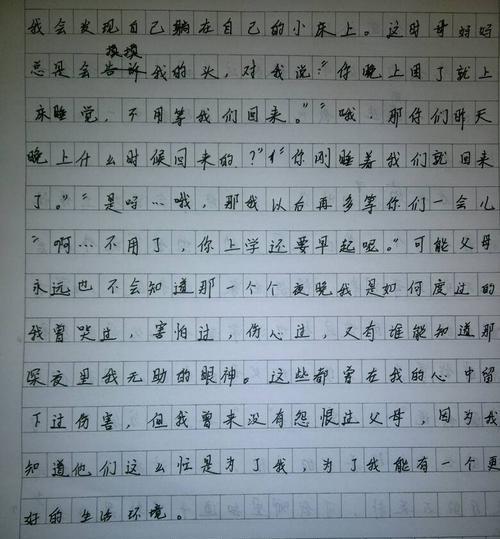 我会发现自己躺在自己的小床上。这时母妈妈
总是会摸摸我的头，对我说："你晚上困了就上
床睡觉，不用等我们回来。""哦，那你们昨天
晚上什么时候回来的？""你刚睡着我们就回来
了。""是吗…哦，那我以后再多等你们一会儿
"啊…不用了，你上学还要早起呢。"可能父母
永远也不会知道那一个个夜晚我是如何度过的
我曾哭过，害怕过，伤心过，又有谁能知道那
深夜里我无助的眼神。这些都曾在我的心中留
下过伤害，但我曾来没有怨恨过父母，因为我
知道他们这么忙是为了我，为了我能有一个更
好的生活环境。